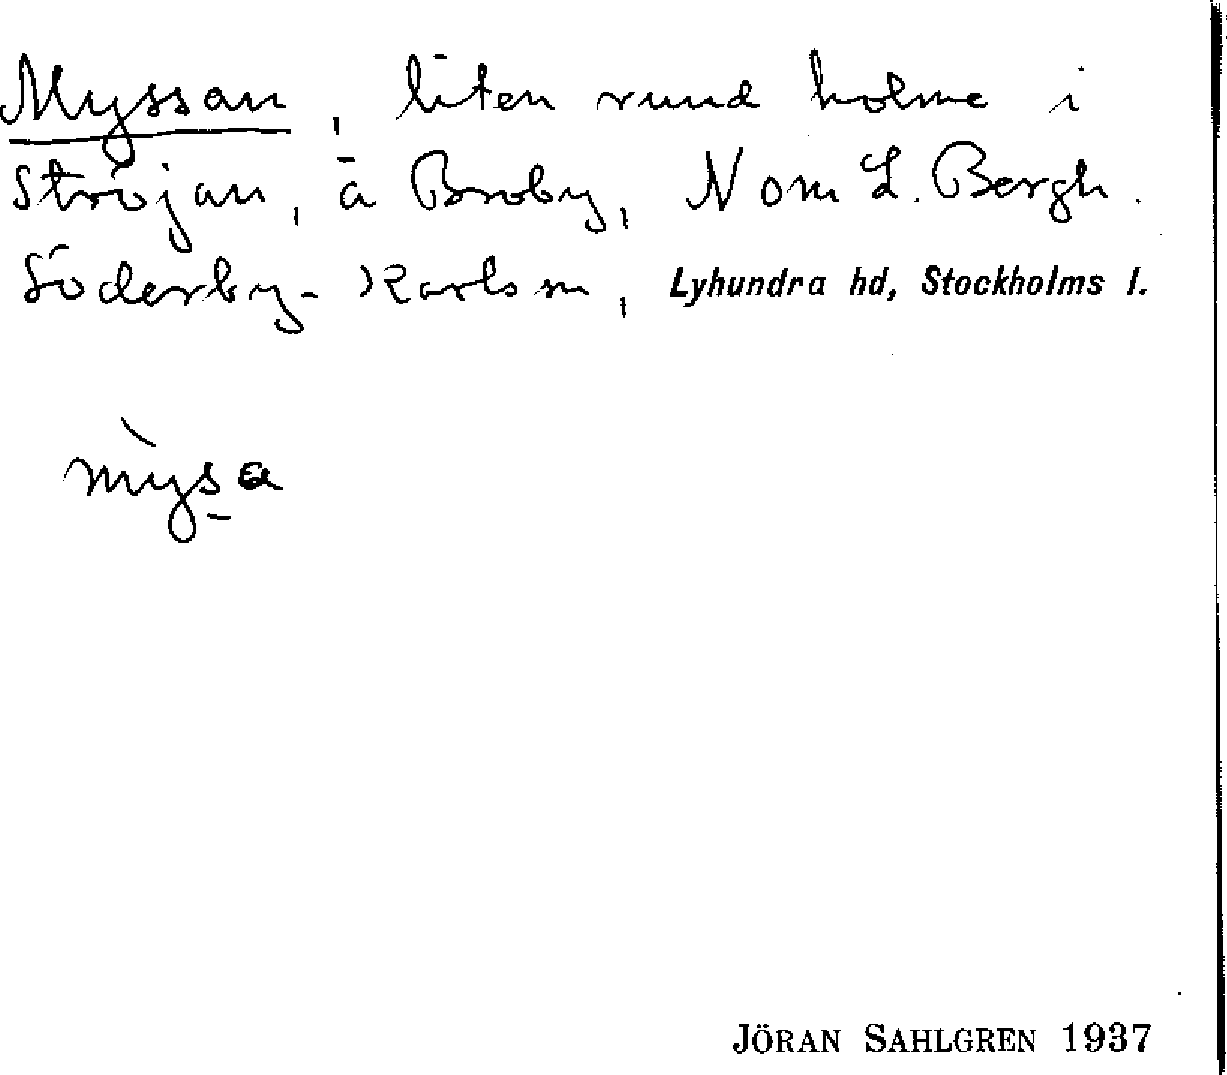 Myssan, liten rund holme i
Ströjan, å Broby, N om L. Bergh.
Söderby-Karls sn, Lyhundra hd, Stockholms l.
mysa
JÖRAN SAHLGREN 1937